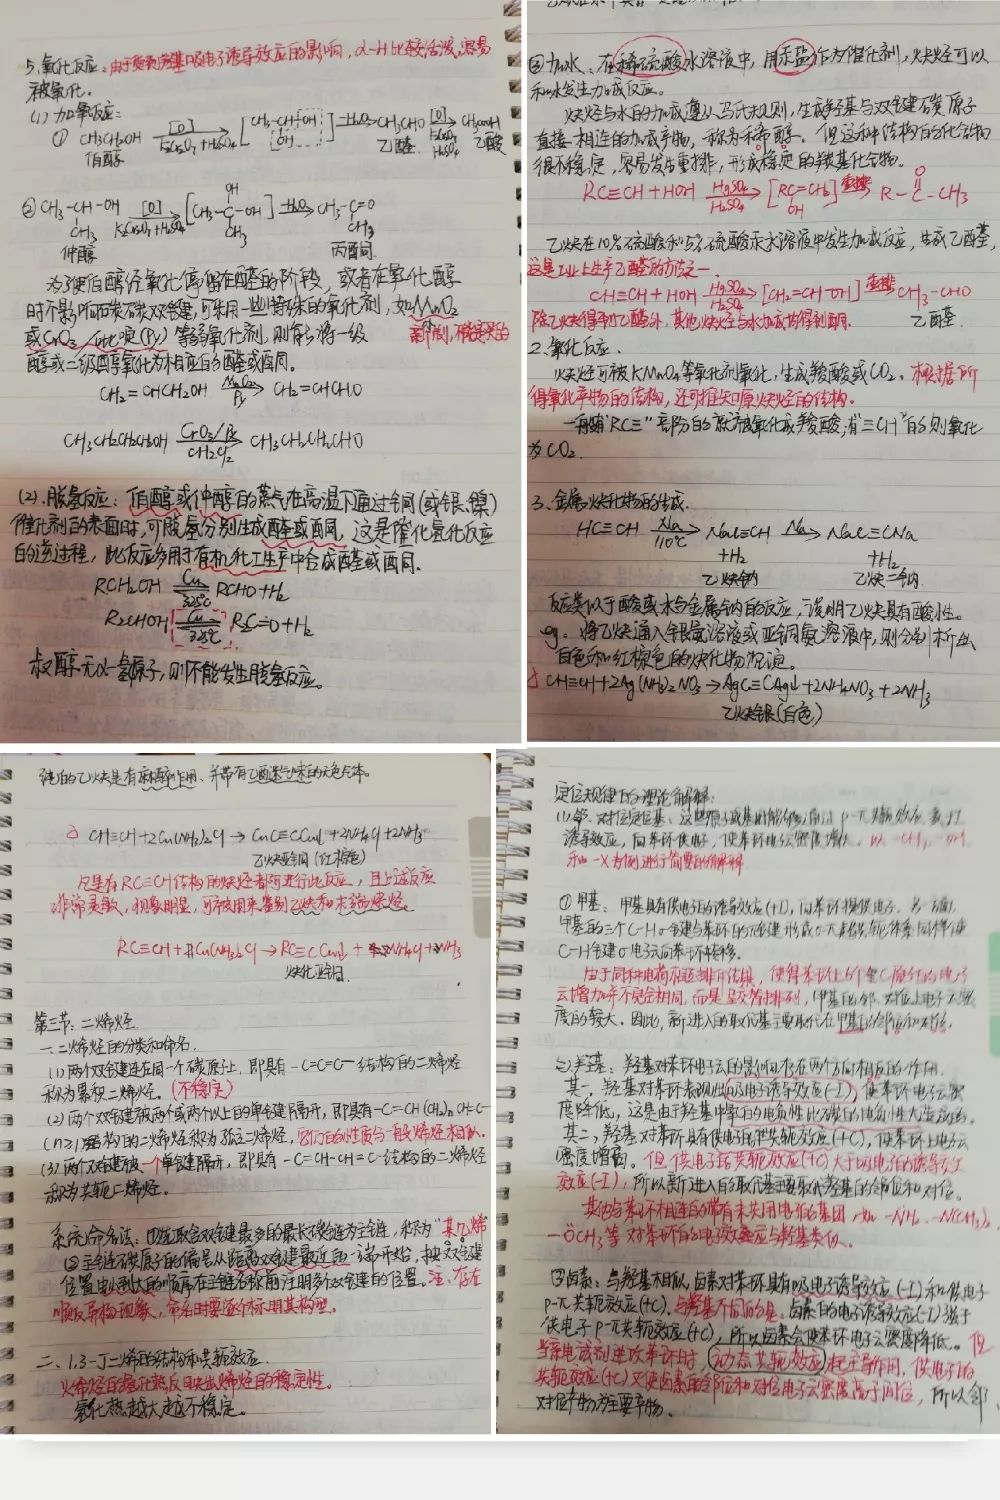 5.氧化反应:由于受到羟基吸电子诱导效应的影响,α-H比较活泼,容易
被氧化。
(1)加氧反应:
① CH3CH2OH [O] K2Cr2O7+H2SO4 → [CH3-CH-OH OH] -H2O → CH3CHO [O] K2Cr2O7 H2SO4 → CH3COOH
伯醇 乙醛 乙酸
② CH3-CH-OH CH3 [O] K2Cr2O7+H2SO4 → [CH3-C-OH OH CH3] -H2O → CH3-C=O CH3
仲醇 丙酮
为了使伯醇经氧化停留在醛的阶段,或者在氧化醇
时不影响碳碳双键,可采用一些特殊的氧化剂,如MnO2
或CrO3/吡啶(Py)等弱氧化剂,则能将一级
醇或二级醇氧化为相应的醛或酮。
CH2=CHCH2OH MnO2 Py → CH2=CHCHO
CH3CH2CH2CH2OH CrO3/Py CH2Cl2 → CH3CH2CH2CHO
(2).脱氢反应:伯醇或仲醇的蒸气在高温下通过铜(或银、镍)
催化剂的表面时,可脱氢分别生成醛或酮,这是催化氢化反应
的逆过程,此反应多用于有机化工生产中合成醛或酮.
RCH2OH Cu 325℃ RCHO+H2
R2CHOH Cu 325℃ R2C=O+H2
叔醇无α-氢原子,则不能发生脱氢反应。
③加水:在稀硫酸水溶液中,用汞盐作为催化剂,炔烃可以
和水发生加成反应。
炔烃与水的加成遵从马氏规则,生成羟基与双键碳原子
直接相连的加成产物,称为烯醇。但这种结构的化合物
很不稳定,容易发生重排,形成稳定的羰基化合物。
RC≡CH+HOH HgSO4 H2SO4 → [RC=CH2 OH] 重排 → R-C-CH3 O
乙炔在10%硫酸和5%硫酸汞水溶液中发生加成反应,生成乙醛,
这是工业上生产乙醛的方法之一.
CH≡CH+HOH HgSO4 H2SO4 → [CH2=CH-OH] 重排 → CH3-CHO
除乙炔得到乙醛外,其他炔烃与水加成均得到酮. 乙醛.
2.氧化反应.
炔烃可被KMnO4等氧化剂氧化,生成羧酸或CO2。根据所
得氧化产物的结构,还可推知原炔烃的结构。
一般"RC≡"部分的就被氧化成羧酸,有"≡CH"的则氧化
为CO2.
3.金属炔化物的生成.
HC≡CH Na 110℃ → NaC≡CH Na → NaC≡CNa
+H2 +H2
乙炔钠 乙炔二钠
反应类似于酸或水与金属钠的反应,说明乙炔具有酸性。
eg.将乙炔通入银氨溶液或亚铜氨溶液中,则分别析出
白色和红棕色的炔化物沉淀。
CH≡CH+2Ag(NH3)2NO3→AgC≡CAg↓+2NH4NO3+2NH3
乙炔银(白色)
纯的乙炔是有麻醉作用、并带有乙醚气味的无色气体。
CH≡CH+2Cu(NH3)2Cl → CuC≡CCu↓+2NH4Cl+2NH3
乙炔亚铜(红棕色)
凡是有RC≡CH结构的炔烃都可进行此反应,且上述反应
非常灵敏,现象明显,可被用来鉴别乙炔和末端炔烃.
RC≡CH+Cu(NH3)2Cl→RC≡CCu↓+NH4Cl+NH3
炔化亚铜.
第三节:二烯烃
一.二烯烃的分类和命名.
(1)两个双键连在同一个碳原子上,即具有-C=C=C-结构的二烯烃
称为累积二烯烃。(不稳定)
(2)两个双键被两个或两个以上的单键隔开,即具有-C=CH(CH2)nCH=C-
(n≥1)结构的二烯烃称为孤立二烯烃,它们的性质与一般烯烃相似.
(3)两个双键被一个单键隔开,即具有-C=CH-CH=C-结构的二烯烃
称为共轭二烯烃。
系统命名法:①选取含双键最多的最长碳链为主链,称为"某几烯
②主链碳原子的编号从距离双键最近的一端开始,按双键
位置由小到大的顺序在主链名称前注明多双键的位置.注:存在
顺反异构现象,命名时要逐个标明其构型。
二、1.3-丁二烯的结构和共轭效应.
火烯烃的氢化热反映出烯烃的稳定性。
氢化热越大越不稳定。
定位规律的理论解释:
(1)邻、对位定位基:这些原子或基团能够通过p-π共轭效应或
诱导效应,向苯环供电子,使苯环电子云密度增大。以-CH3,-OH
和-X为例进行简要的解释
①甲基:甲基具有供电子的诱导效应(+I),向苯环提供电子.另一方面,
甲基的三个C-Hσ键与苯环的π键形成σ-π超共轭体系同样使
C-H键σ电子向苯环转移.
由于同种电荷相互排斥结果,使得苯环上的个C原子的电子
云增加并不完全相同,而是呈交替排列,甲基的邻、对位上电子云密
度的较大。因此,新进入的取代基主要取代在甲基的邻位和对位.
②羟基:羟基对苯环电子云的影响存在两个方向相反的作用.
其一,羟基对苯环表现出吸电子诱导效应(-I),使苯环电子云密
度降低,这是由于羟基中氧的电负性比碳的电负性大造成的.
其二,羟基对苯环具有供电子的共轭效应(+C),使苯环上电子云
密度增高。但供电子的共轭效应(+C)大于吸电子的诱导
效应(-I),所以新进入的取代基主要取代羟基的邻位和对位.
其他与苯环相连的带有未共用电子的基团,如-NH2、-N(CH3)2、
-OCH3等对苯环的电子效应与羟基类似.
③卤素:与羟基相似,卤素对苯环具有吸电子诱导效应(-I)和供电子
p-π共轭效应(+C).与羟基不同的是:卤素的电子诱导效应(-I)强于
供电子p-π共轭效应(+C),所以卤素会使苯环电子云密度降低。但
当亲电试剂进攻苯环时,动态共轭效应起主导作用,供电子的
共轭效应(+C)又使卤素的邻位和对位电子云密度高于间位,所以邻
对位产物为主要产物.